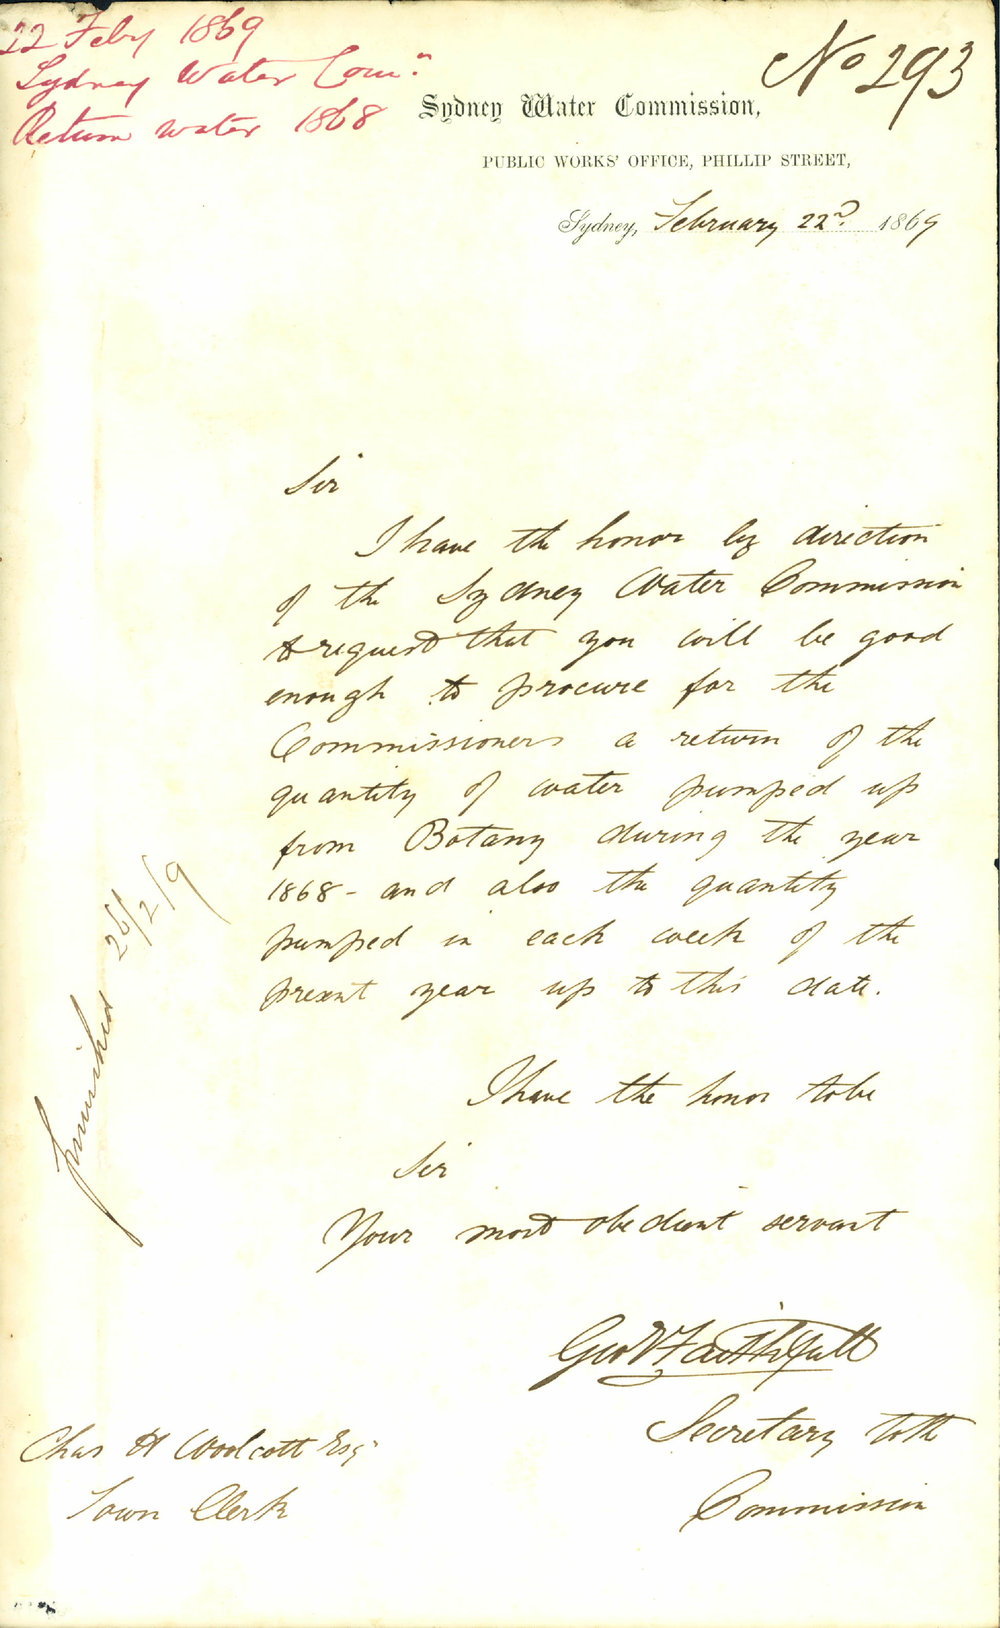 22 Feby 1869
Sydney Water Comn
Return water 1868
No 293
Sydney Water Commission,
PUBLIC WORKS' OFFICE, PHILLIP STREET,
Sydney, February 22nd 1869
Sir
I have the honor by direction
of the Sydney Water Commission
to request that you will be good
enough to procure for the
Commissioners a return of the
quantity of water pumped up
from Botany during the year
1868 - and also the quantity
pumped in each week of the
present year up to this date.
I have the honor to be
Sir
Your most obedient servant
Geo Faithfull
Secretary to the
Commission
Chas H Woolcott Esq
Town Clerk
furnished 26/2/9